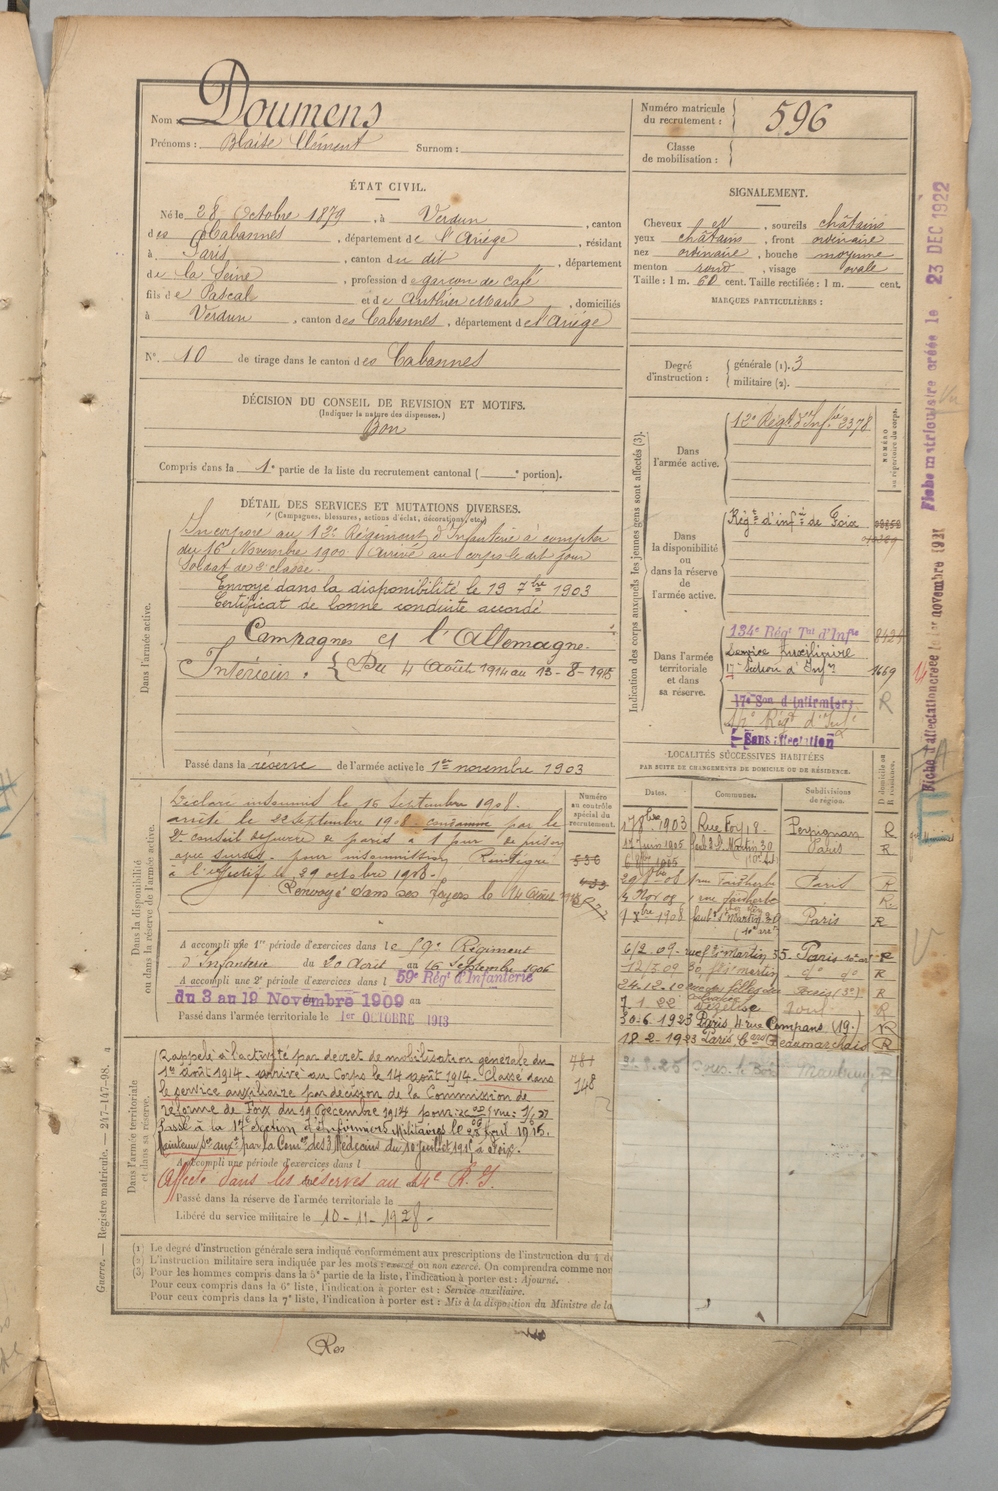 Nom Doumens
Prénoms : Blaise Clément Surnom :
Numéro matricule du recrutement : 596
Classe de mobilisation :
ÉTAT CIVIL.
Né le 28 Octobre 1879, à Verdun, canton
des Cabannes, département de l'Ariège, résidant
à Paris, canton du dit, département
de la Seine, profession de garçon de café
fils de Pascal et de Authier Marie, domiciliés
à Verdun, canton des Cabannes, département de l'Ariège
N° 10 de tirage dans le canton des Cabannes
SIGNALEMENT.
Cheveux , sourcils châtains
yeux châtains, front ordinaire
nez ordinaire, bouche moyenne
menton rond, visage ovale
Taille : 1 m. 60 cent. Taille rectifiée : 1 m. cent.
MARQUES PARTICULIÈRES :
Degré d'instruction : générale (1). 3
militaire (2).
DÉCISION DU CONSEIL DE REVISION ET MOTIFS.
(Indiquer la nature des dispenses.)
Bon
Compris dans la 1e partie de la liste du recrutement cantonal ( e portion).
DÉTAIL DES SERVICES ET MUTATIONS DIVERSES.
(Campagnes, blessures, actions d'éclat, décorations, etc.)
Dans l'armée active.
Incorporé au 12e Régiment d'Infanterie à compter
du 16 Novembre 1900 Arrivé au corps le dit jour
Soldat de 2e classe.
Envoyé dans la disponibilité le 19 7bre 1903
Certificat de bonne conduite accordé
Campagnes et l'Allemagne.
Intérieur. { Du 4 Août 1914 au 13-8-1915
Passé dans la réserve de l'armée active le 1er novembre 1903
Indication des corps auxquels les jeunes gens sont affectés (3).
NUMÉRO au répertoire du corps.
Dans l'armée active.
12e Régt d'Infie 2378
Dans la disponibilité ou dans la réserve de l'armée active.
Régt d'infie de Foix
Dans l'armée territoriale et dans sa réserve.
134e Régt Tal d'Infie
Service Auxiliaire
17e Section d'Infrs 1669
17e Son d'Infirmiers R
Sans affectation
Fiche matriculaire créée le 23 DEC 1922
Fiche d'affectation créée le 1er novembre 1921
LOCALITÉS SUCCESSIVES HABITÉES
PAR SUITE DE CHANGEMENTS DE DOMICILE OU DE RÉSIDENCE.
Dates. Communes. Subdivisions de région. D domicile ou R résidence.
17 8bre 1903 Rue Foy 18 Perpignan R
12 juin 1905 Paris R
Paris R
4 Nov 08 1 rue Faidherbe R
7 Xbre 1908 Paris R
6/2.09. rue St Martin 35. Paris R
12/3.09 do do R
24.12.10 R
7.1.22 Vezelise Toul R
30-6.1923 Paris, 4 rue Compans (19e) R
18.2-1923 Paris, Bard Beaumarchais R
R
Dans la disponibilité ou dans la réserve de l'armée active.
Numéro au contrôle spécial du recrutement.
Déclaré insoumis le 16 Septembre 1908.
arrêté le 22 septembre 1908. condamné par le
2e conseil de guerre de paris à 1 jour de prison
avec sursis. pour insoumission Réintégré
à l'effectif le 29 octobre 1908.
Renvoyé dans ses foyers le 14 Août
536
A accompli une 1re période d'exercices dans le 59e Régiment
d'Infanterie du 20 Août au 16 Septembre 1906
A accompli une 2e période d'exercices dans l 59e Régt d'Infanterie
du 3 au 19 Novembre 1909
Passé dans l'armée territoriale le 1er OCTOBRE 1913
Dans l'armée territoriale et dans sa réserve.
Rappelé à l'activité par décret de mobilisation générale du
1er août 1914. arrivé au Corps le 14 août 1914. Classé dans
le service auxiliaire par décision de la Commission de
réforme de Foix du 19 Décembre 1914 pour:
Passé à la 17e Section d'Infirmiers Militaires le 28 Avril 1915.
Maintenu Sce auxre par la Comon des 3 Médecins du 10 juillet 1915 à Foix.
148
A accompli une période d'exercices dans l
Affecté dans les réserves au 14e R.I.
Passé dans la réserve de l'armée territoriale le
Libéré du service militaire le 10-11-1928.
(1) Le degré d'instruction générale sera indiqué conformément aux prescriptions de l'instruction du 4 d
(2) L'instruction militaire sera indiquée par les mots : exercé ou non exercé. On comprendra comme non
(3) Pour les hommes compris dans la 5e partie de la liste, l'indication à porter est : Ajourné.
Pour ceux compris dans la 6e liste, l'indication à porter est : Service auxiliaire.
Pour ceux compris dans la 7e liste, l'indication à porter est : Mis à la disposition du Ministre de la
Guerre. — Registre matricule. — 247-147-98.
Res